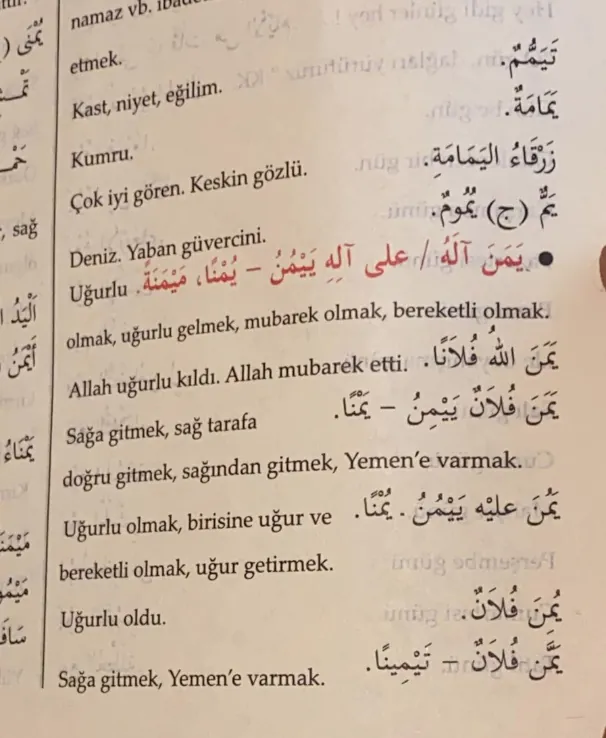 namaz vb.
etmek.
تَيَمُّمٌ.
Kast, niyet, eğilim.
يَمَامَةٌ.
Kumru.
زَرْقَاءُ اليَمَامَةِ.
Çok iyi gören. Keskin gözlü.
يَمٌّ (ج) يُمُومٌ.
Deniz. Yaban güvercini.
● يَمَنَ آلَهُ / على آلِهِ يَيْمُنُ – يُمْنًا، مَيْمَنَةً. Uğurlu
olmak, uğurlu gelmek, mubarek olmak, bereketli olmak.
يَمَنَ اللهُ فُلاَنًا. Allah uğurlu kıldı. Allah mubarek etti.
يَمَنَ فُلاَنٌ يَيْمِنُ – يَمْنًا. Sağa gitmek, sağ tarafa
doğru gitmek, sağından gitmek, Yemen'e varmak.
يَمُنَ عليْه يَيْمُنُ . يُمْنًا. Uğurlu olmak, birisine uğur ve
bereketli olmak, uğur getirmek.
يُمِنَ فُلاَنٌ. Uğurlu oldu.
يَمَّنَ فُلاَنٌ – تَيْمِينًا. Sağa gitmek, Yemen'e varmak.
, sağ